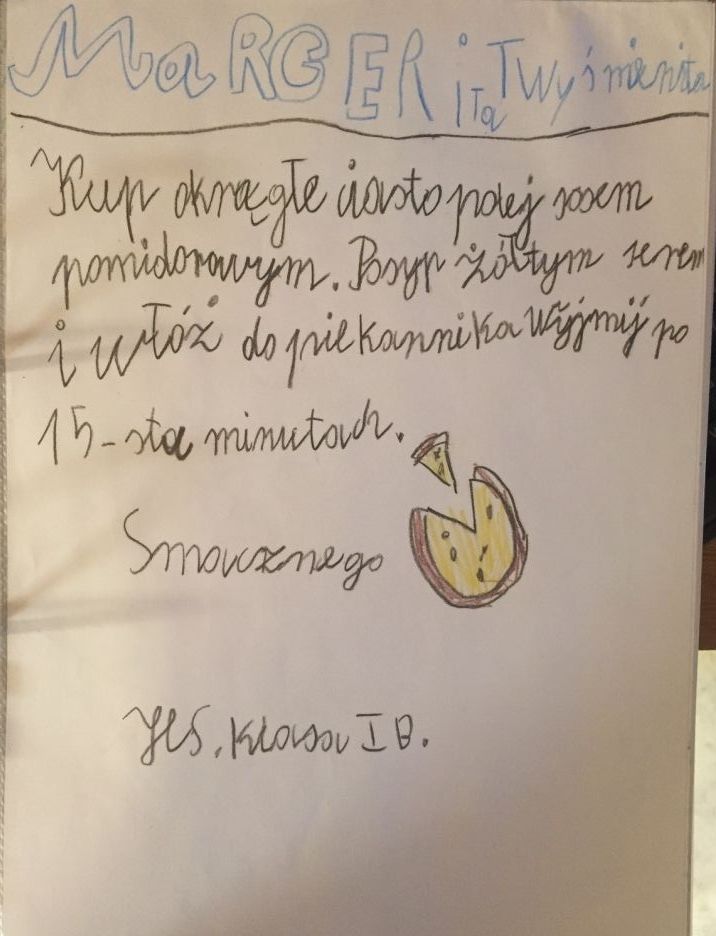 MaRGERita Twyśmienita
Kup okrągłe ciasto polej sosem
pomidorowym. Posyp żółtym serem
i włóż do piekannika Wyjmij po
15-sta minutach.
Smacznego
klasa I B.